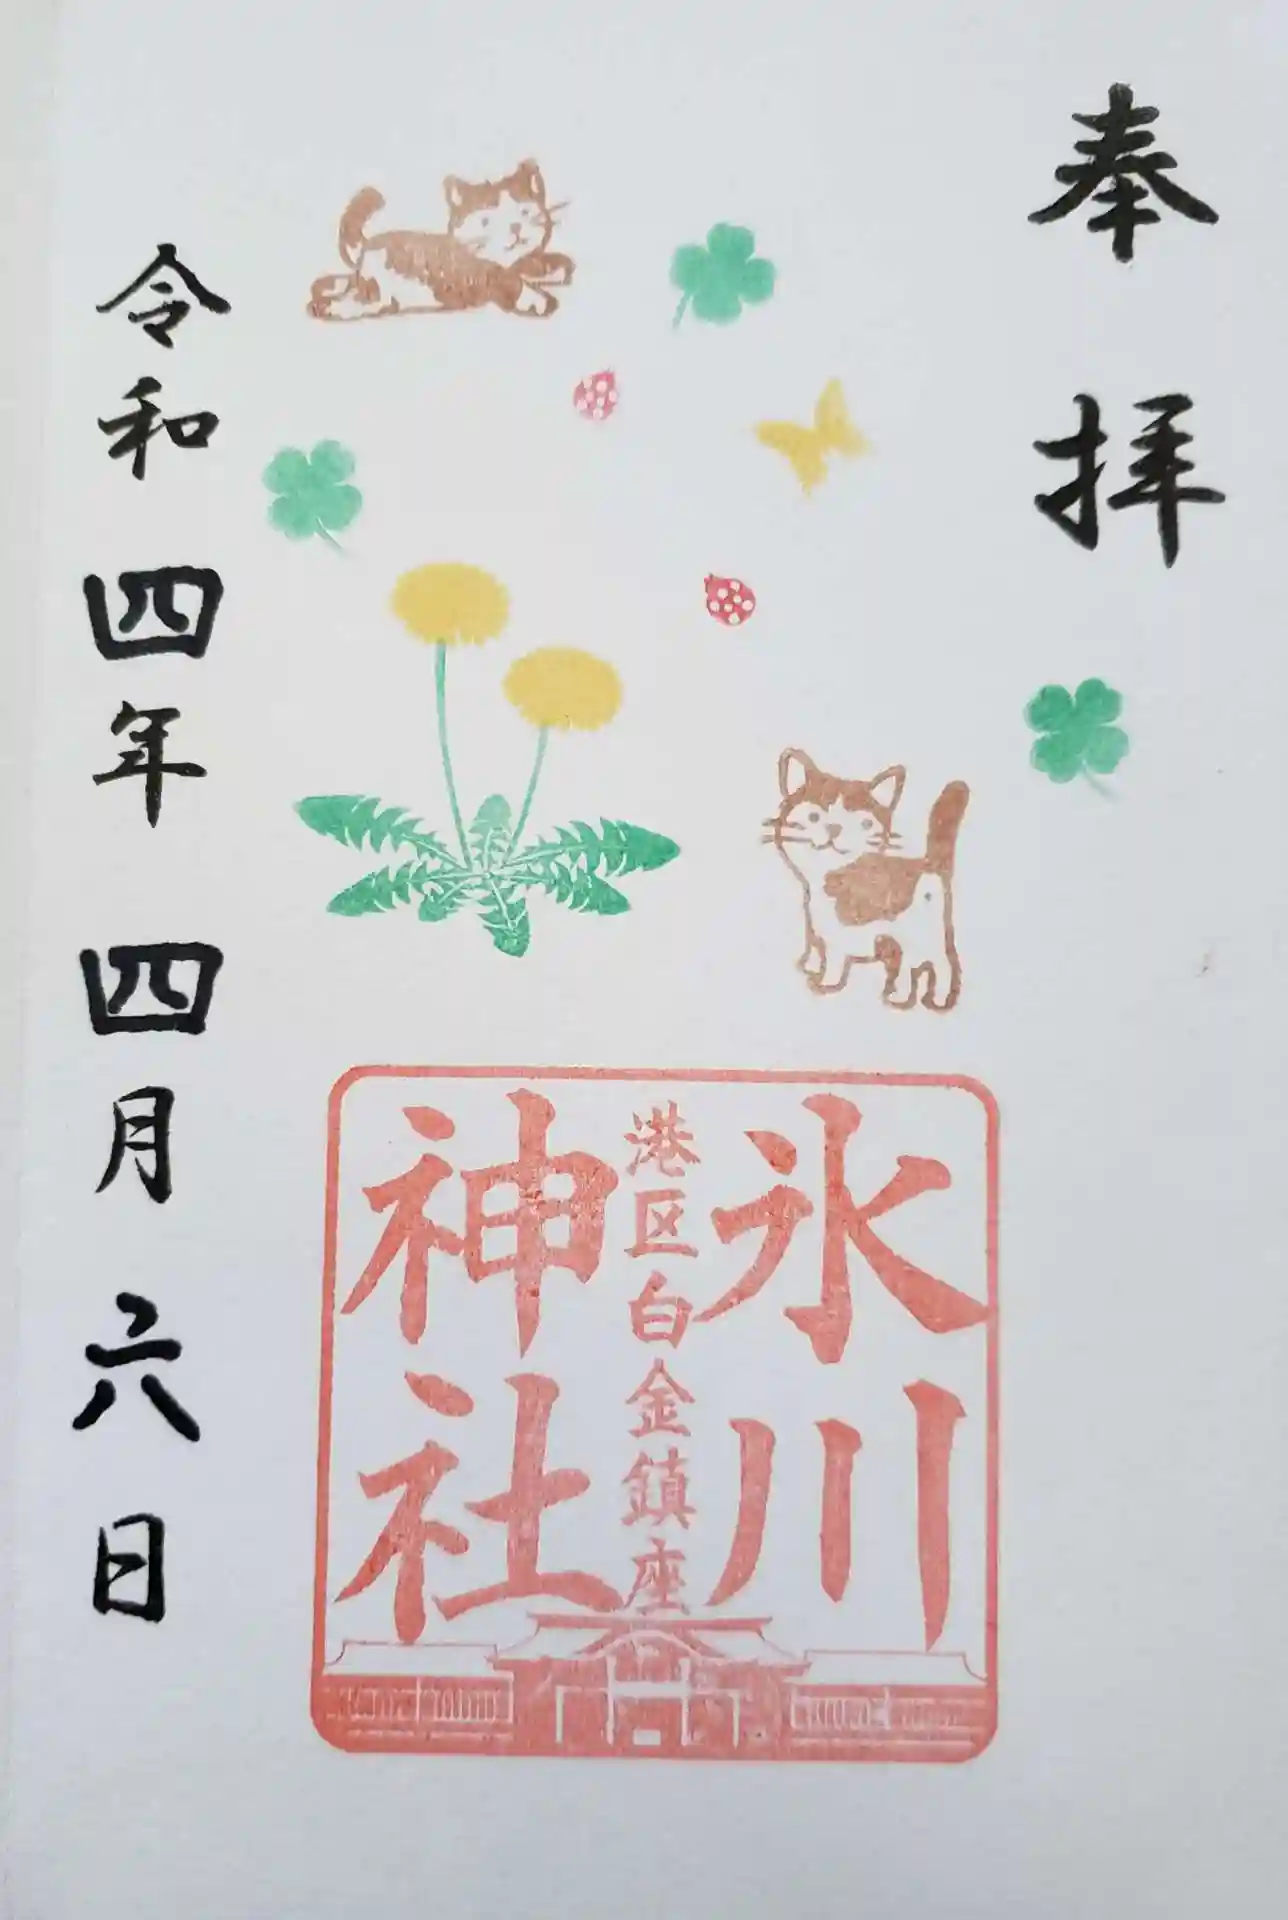 奉拝
氷川
港区白金鎮座
神社
令和四年四月六日